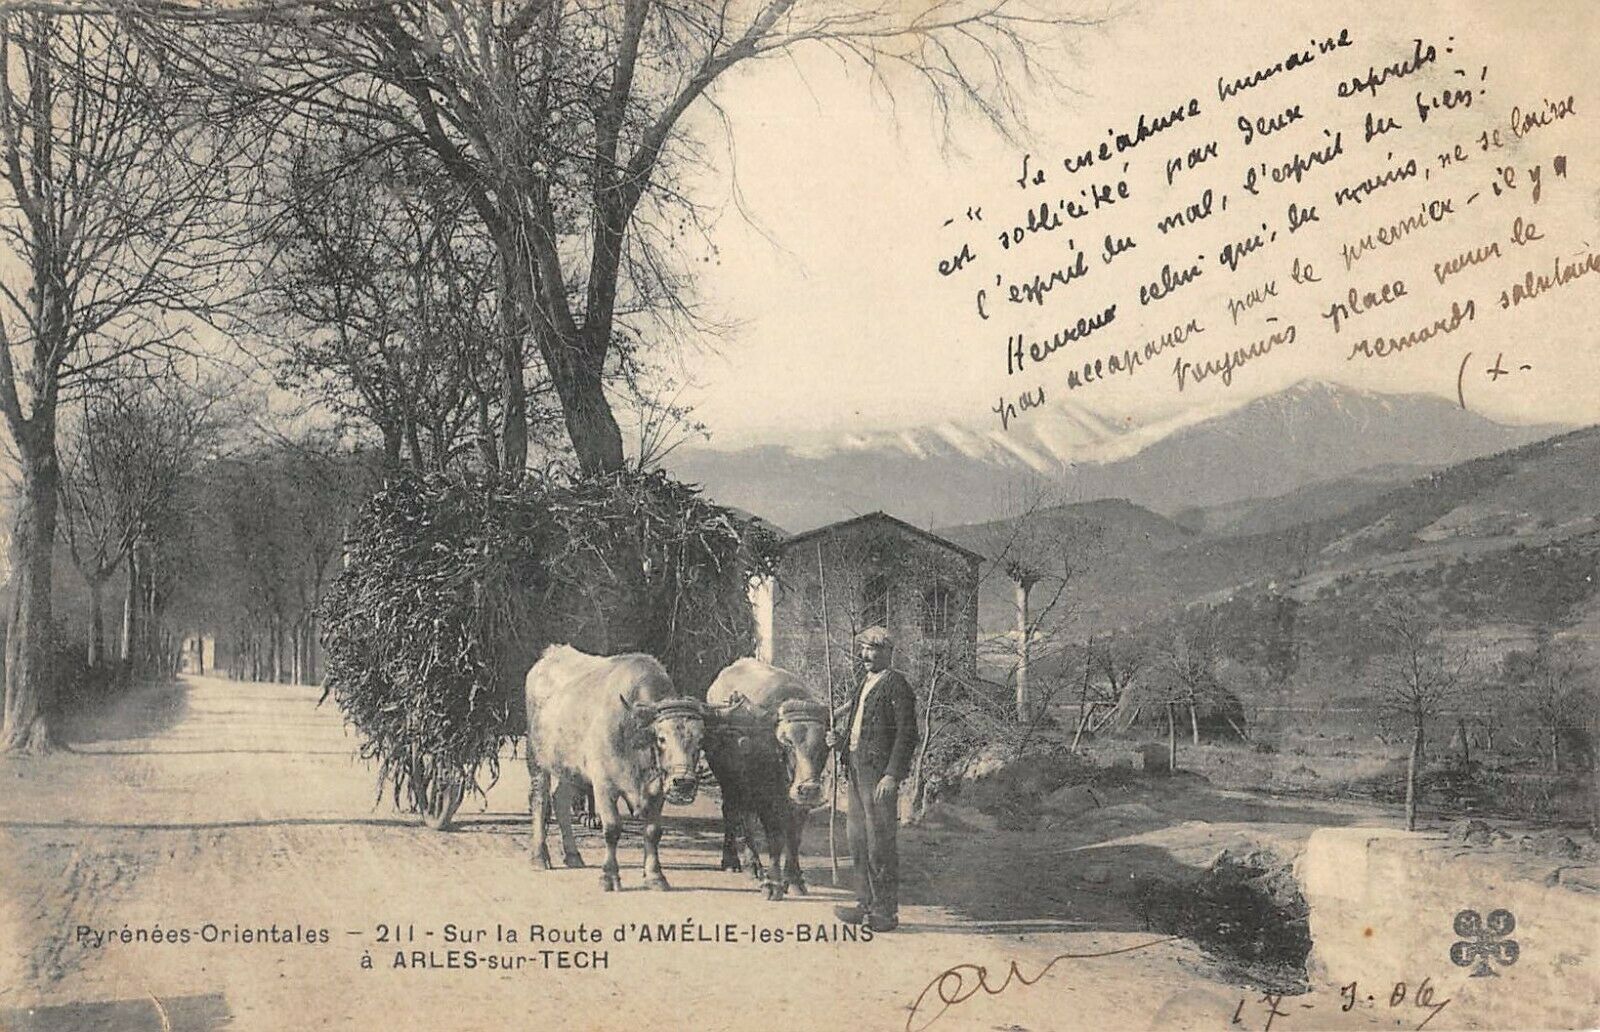 - " La créature humaine
est sollicitée par deux esprits:
l'esprit du mal, l'esprit du bien!
Heureux celui qui, du moins, ne se laisse
pas accaparer par le premier - il y a
toujours place pour le
remords salutaire
(x-
Pyrénées-Orientales - 211 - Sur la Route d'AMÉLIE-les-BAINS
à ARLES-sur-TECH
MTIL
17-3.06